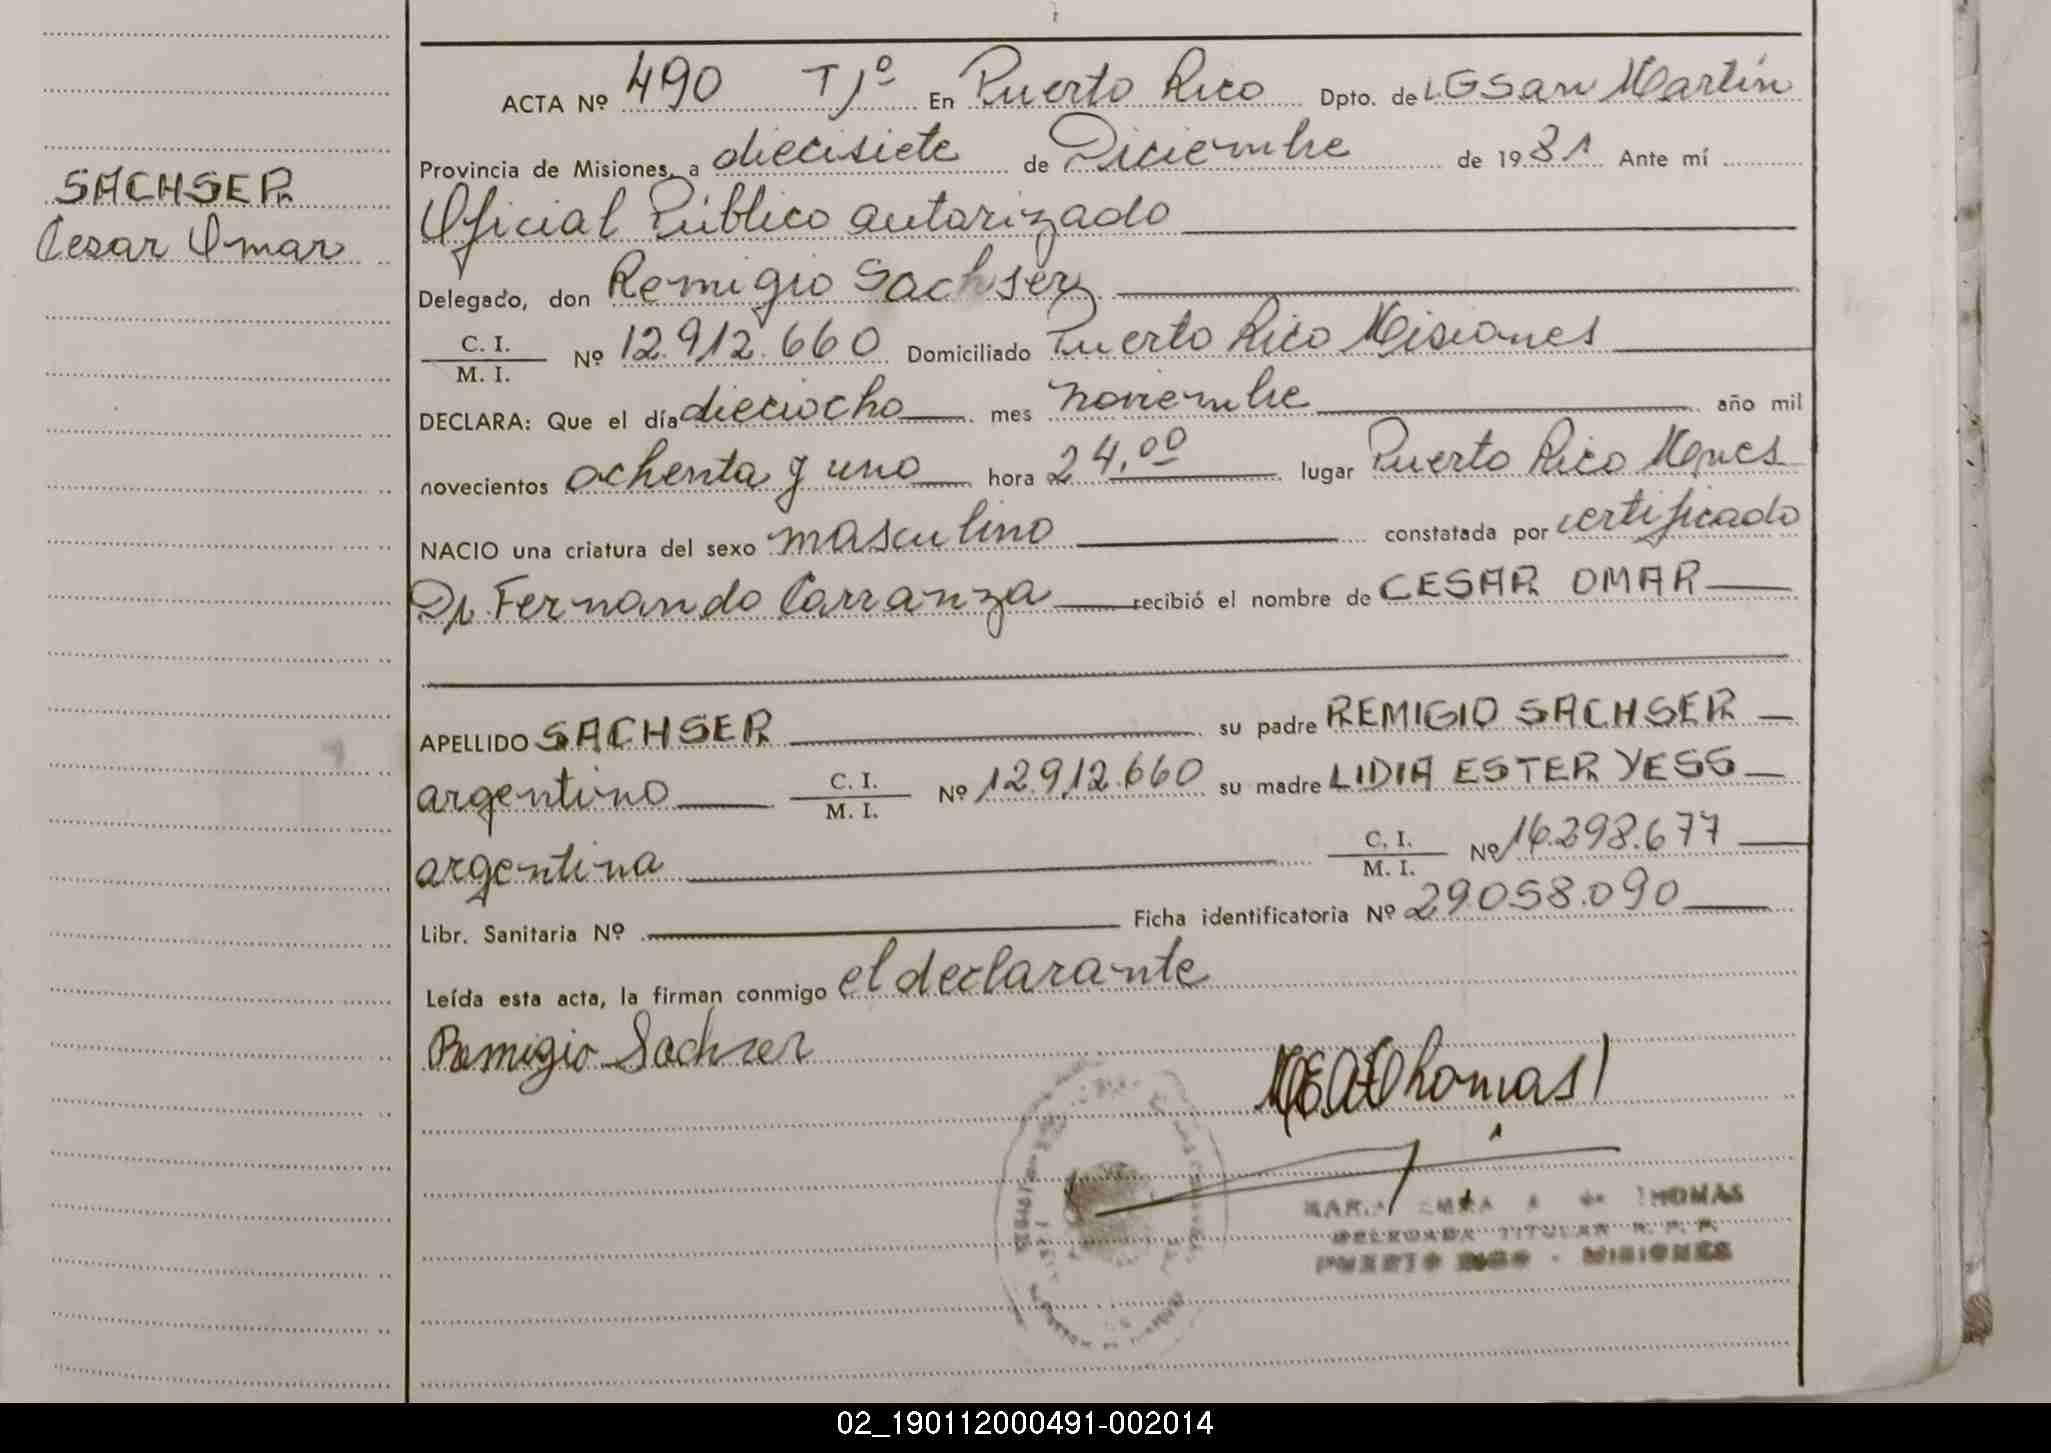 ACTA Nº 490 Tjº En Puerto Rico Dpto. de LGSan Martín
Provincia de Misiones, a diecisiete de Diciembre de 1981 Ante mí
SACHSER
Cesar Omar
Oficial Público autorizado
Delegado, don Remigio Sachser
C. I.
M. I.
Nº 12.912.660 Domiciliado Puerto Rico Misiones
DECLARA: Que el día dieciocho mes noviembre año mil
novecientos ochenta y uno hora 24,00 lugar Puerto Rico Mnes
NACIO una criatura del sexo masculino constatada por certificado
Dr. Fernando Carranza recibió el nombre de CESAR OMAR
APELLIDO SACHSER su padre REMIGIO SACHSER
argentino C. I. M. I. Nº 12.912.660 su madre LIDIA ESTER YESS
argentina C. I. M. I. Nº 14.298.677
Libr. Sanitaria Nº Ficha identificatoria Nº 29058.090
Leída esta acta, la firman conmigo el declarante
Remigio Sachser
Thomas
THOMAS
DELEGADA TITULAR R. P. P.
PUERTO RICO - MISIONES
02_190112000491-002014